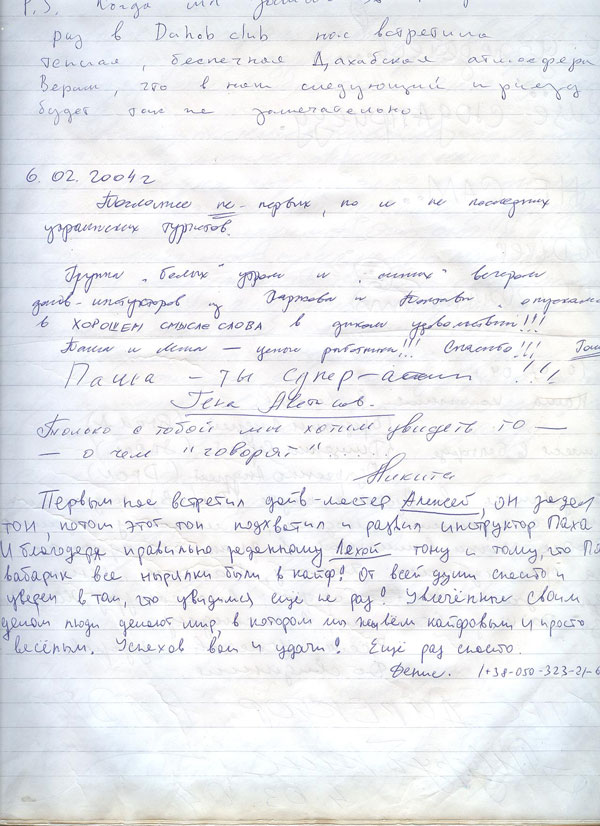 P.S. Когда мы
раз в Dahab club нас встретила
теплая, беспечная Дахабская атмосфера
Верим, что в наш следующий приезд
будет так же замечательно
6.02.2004г
не-первых, но и не последних
украинских туристов.
Группа "белых" утром и "синих" вечером
дайв-инструкторов из Харькова и Полтавы
в ХОРОШЕМ СМЫСЛЕ СЛОВА в диком удовольствии!!!
Паша и Леша — ценные работники!!! Спасибо!!!
Паша — ты супер- !!!
Гена
Только с тобой мы хотим увидеть то —
— о чем "говорят"
Никита
Первым нас встретил дайв-мастер Алексей, он задал
тон, потом этот тон подхватил и развил инструктор Паха
И благодаря правильно заданному Лехой тону и тому, что
все нырялки были в кайф! От всей души спасибо и
уверен в том, что увидимся еще не раз! Увлечённые своим
делом люди делают мир, в котором мы живём кайфовым и просто
весёлым. Успехов вам и удачи! Ещё раз спасибо.
Фение. /+38-050-323-21-6